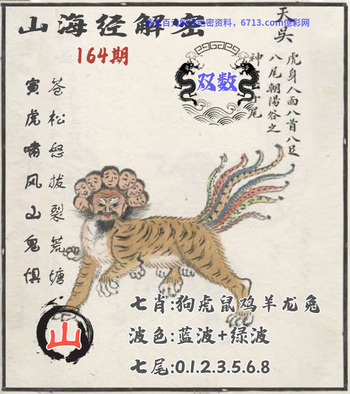 山海经解密
资料，6713.com
164期
双数
天吴
虎身人面八首八足
八尾朝陽谷之
神
尾
寅虎啸风山鬼惧
苍松怒拔裂塘
山
七肖:狗虎鼠鸡羊龙兔
波色:蓝波+绿波
七尾:0.1.2.3.5.6.8